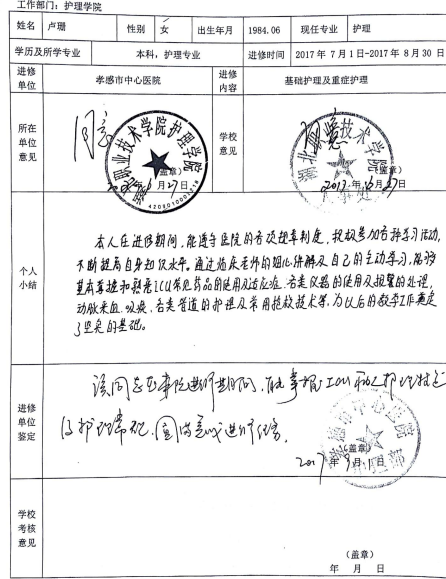 工作部门：护理学院
姓名 卢珊 性别 女 出生年月 1984.06 现任专业 护理
学历及所学专业 本科，护理专业 进修时间 2017年7月1日-2017年8月30日
进修单位 孝感市中心医院 进修内容 基础护理及重症护理
所在单位意见 同意 （盖章） 6月27日 学校意见 同意 （盖章） 2017年6月27日
职业技术学院护理学院
湖北职业技术
个人小结
本人在进修期间，能遵守医院的各项规章制度，积极参加各种学习活动，
不断提高自身知识水平。通过临床老师的细心讲解及自己的主动学习，能够
基本掌握和熟悉ICU常见药品的使用及适应症、各类仪器的使用及报警的处理，
动脉采血、吸痰、各类管道的护理及常用抢救技术等，为以后的教学工作奠定
了坚实的基础。
进修单位鉴定
该同志在我院进修期间，能掌握ICU
及护理常规，圆满完成进修任务。
（盖章）
2017年9月1日
孝感市中心医院
护理部
学校考核意见
（盖章）
年 月 日